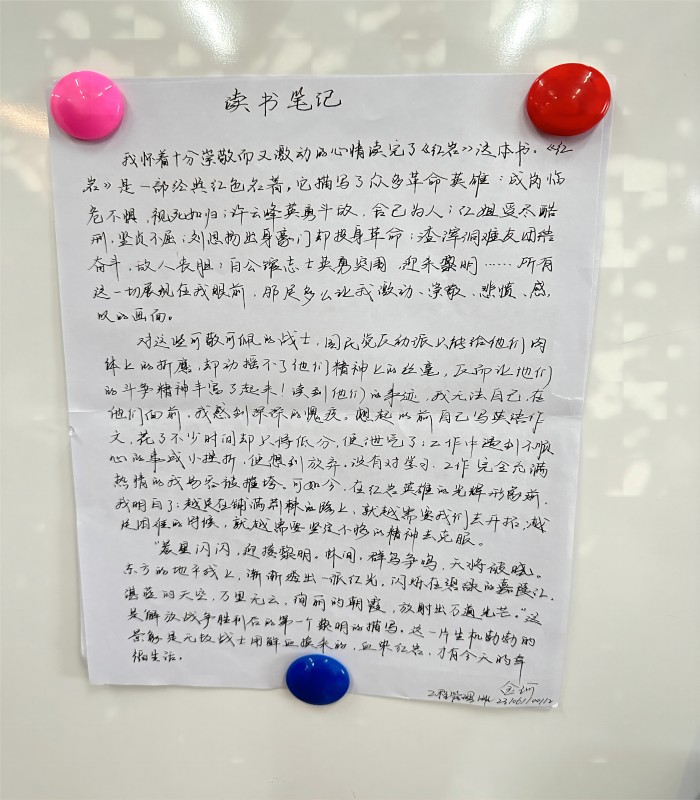 读书笔记
我怀着十分崇敬而又激动的心情读完了《红岩》这本书。《红
岩》是一部经典红色名著，它描写了众多革命英雄：成岗临
危不惧，视死如归；许云峰英勇斗敌，舍己为人；江姐受尽酷
刑，坚贞不屈；刘思扬出身豪门却投身革命；渣滓洞难友团结
奋斗，敌人丧胆；白公馆志士英勇突围，迎来黎明……所有
这一切展现在我眼前，那是多么让我激动、崇敬、悲愤、感
叹的画面。
对这些可敬可佩的战士，国民党反动派只能给他们肉
体上的折磨，却动摇不了他们精神上的丝毫，反而让他们
的斗争精神丰富了起来！读到他们的事迹，我无法自已，在
他们面前，我感到深深的愧疚。想起以前自己写英语作
文，花了不少时间却只得低分，便泄气了；工作中遇到不顺
心的事或小挫折，便想到放弃。没有对学习、工作完全充满
热情的我易容被摧垮。可如今，在红岩英雄的光辉形象前，
我明白了：越是在铺满荆棘的路上，就越需要我们去开拓，越
是困难的时候，就越需要坚定不移的精神去克服。
"晨星闪闪，迎接黎明。林间，群鸟争鸣，天将破晓。
东方的地平线上，渐渐透出一派红光，闪烁在碧绿的嘉陵江，
湛蓝的天空，万里无云，绚丽的朝霞，放射出万道光芒。"这
是解放战争胜利后的第一个黎明的描写。这一片生机勃勃的
景象是无数战士用鲜血换来的，血染红岩，才有今天的幸
福生活。
工程管理